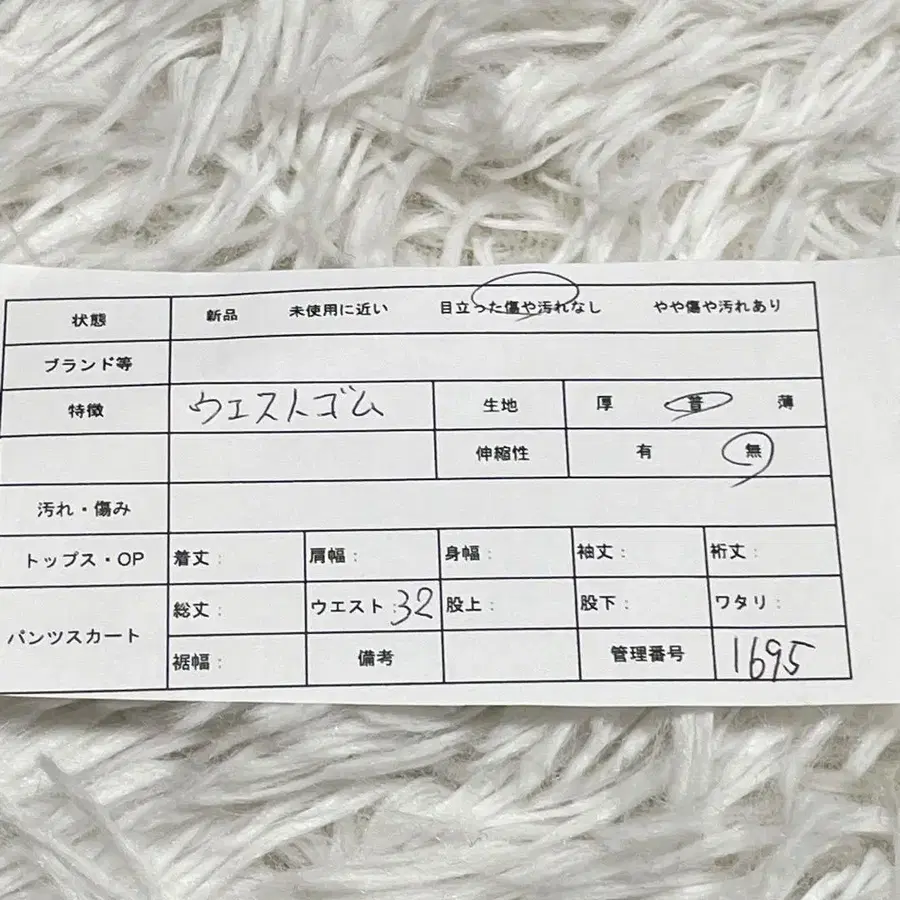 状態 新品 未使用に近い 目立った傷や汚れなし やや傷や汚れあり
ブランド等
特徴 ウエストゴム 生地 厚 普 薄
伸縮性 有 無
汚れ・傷み
トップス・OP 着丈: 肩幅: 身幅: 袖丈: 裄丈:
パンツスカート 総丈: ウエスト:32 股上: 股下: ワタリ:
裾幅: 備考 管理番号 1695